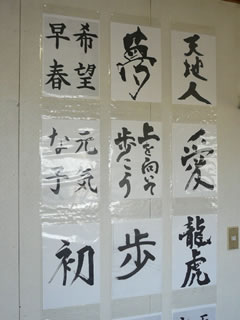 天地人
夢
希望
早春
愛
上を向いて
歩こう
元気
な子
龍虎
歩
初